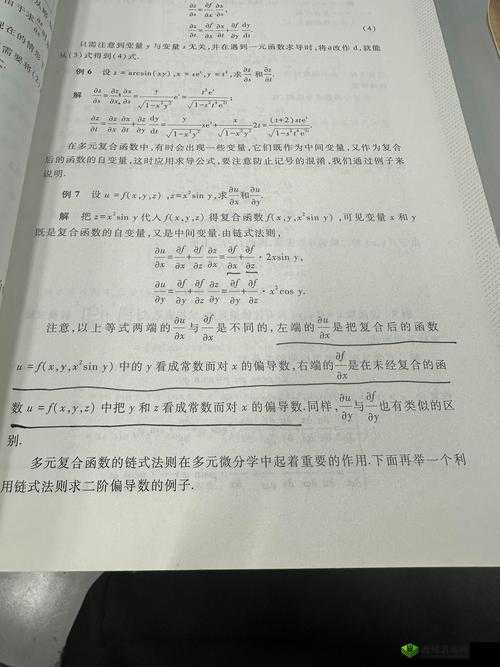 ∂z/∂s = ∂f/∂x ∂x/∂s,
∂z/∂t = ∂f/∂x ∂x/∂t + ∂f/∂y dy/dt (4)
只需注意到变量 y 与变量 s 无关,并在遇到一元函数求导时,将∂改作 d,就能
从(3)式得到(4)式.
例 6 设 z = arcsin(xy), x = se^t, y = t²,求 ∂z/∂s 和 ∂z/∂t.
解 ∂z/∂s = ∂z/∂x ∂x/∂s = y/√(1-x²y²) e^t = t²e^t/√(1-s²t⁴e^{2t}),
∂z/∂t = ∂z/∂x ∂x/∂t + ∂z/∂y dy/dt = y/√(1-x²y²) se^t + x/√(1-x²y²) 2t = (t+2)ste^t/√(1-s²t⁴e^{2t}).
在多元复合函数中,有时会出现一些变量,它们既作为中间变量,又作为复合
后的函数的自变量,这时应用求导公式,要注意防止记号的混淆,我们通过例子来
说明.
例 7 设 u = f(x,y,z), z = x²sin y,求 ∂u/∂x 和 ∂u/∂y.
解 把 z = x²sin y 代入 f(x,y,z) 得复合函数 f(x,y,x²sin y),可见变量 x 和 y
既是复合函数的自变量,又是中间变量.由链式法则,
∂u/∂x = ∂f/∂x + ∂f/∂z ∂z/∂x = ∂f/∂x + ∂f/∂z · 2xsin y,
∂u/∂y = ∂f/∂y + ∂f/∂z ∂z/∂y = ∂f/∂y + ∂f/∂z · x²cos y.
注意,以上等式两端的 ∂u/∂x 与 ∂f/∂x 是不同的,左端的 ∂u/∂x 是把复合后的函数
u = f(x,y,x²sin y) 中的 y 看成常数而对 x 的偏导数,右端的 ∂f/∂x 是在未经复合的函
数 u = f(x,y,z) 中把 y 和 z 看成常数而对 x 的偏导数.同样, ∂u/∂y 与 ∂f/∂y 也有类似的区
别.
多元复合函数的链式法则在多元微分学中起着重要的作用.下面再举一个利
用链式法则求二阶偏导数的例子.